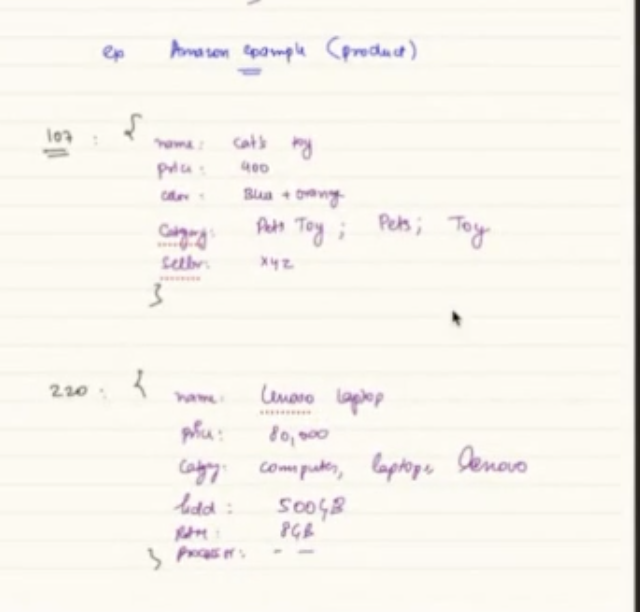 ex Amazon example (product)
107 : {
name: cat's toy
price: 400
color: Blue + orange
Category: Pets Toy ; Pets ; Toy
Seller: xyz
}
220 : {
name: Lenovo laptop
price: 80,000
Catgy: computer, laptops Lenovo
hdd : 500GB
RAM : 8GB
} Processor: - -